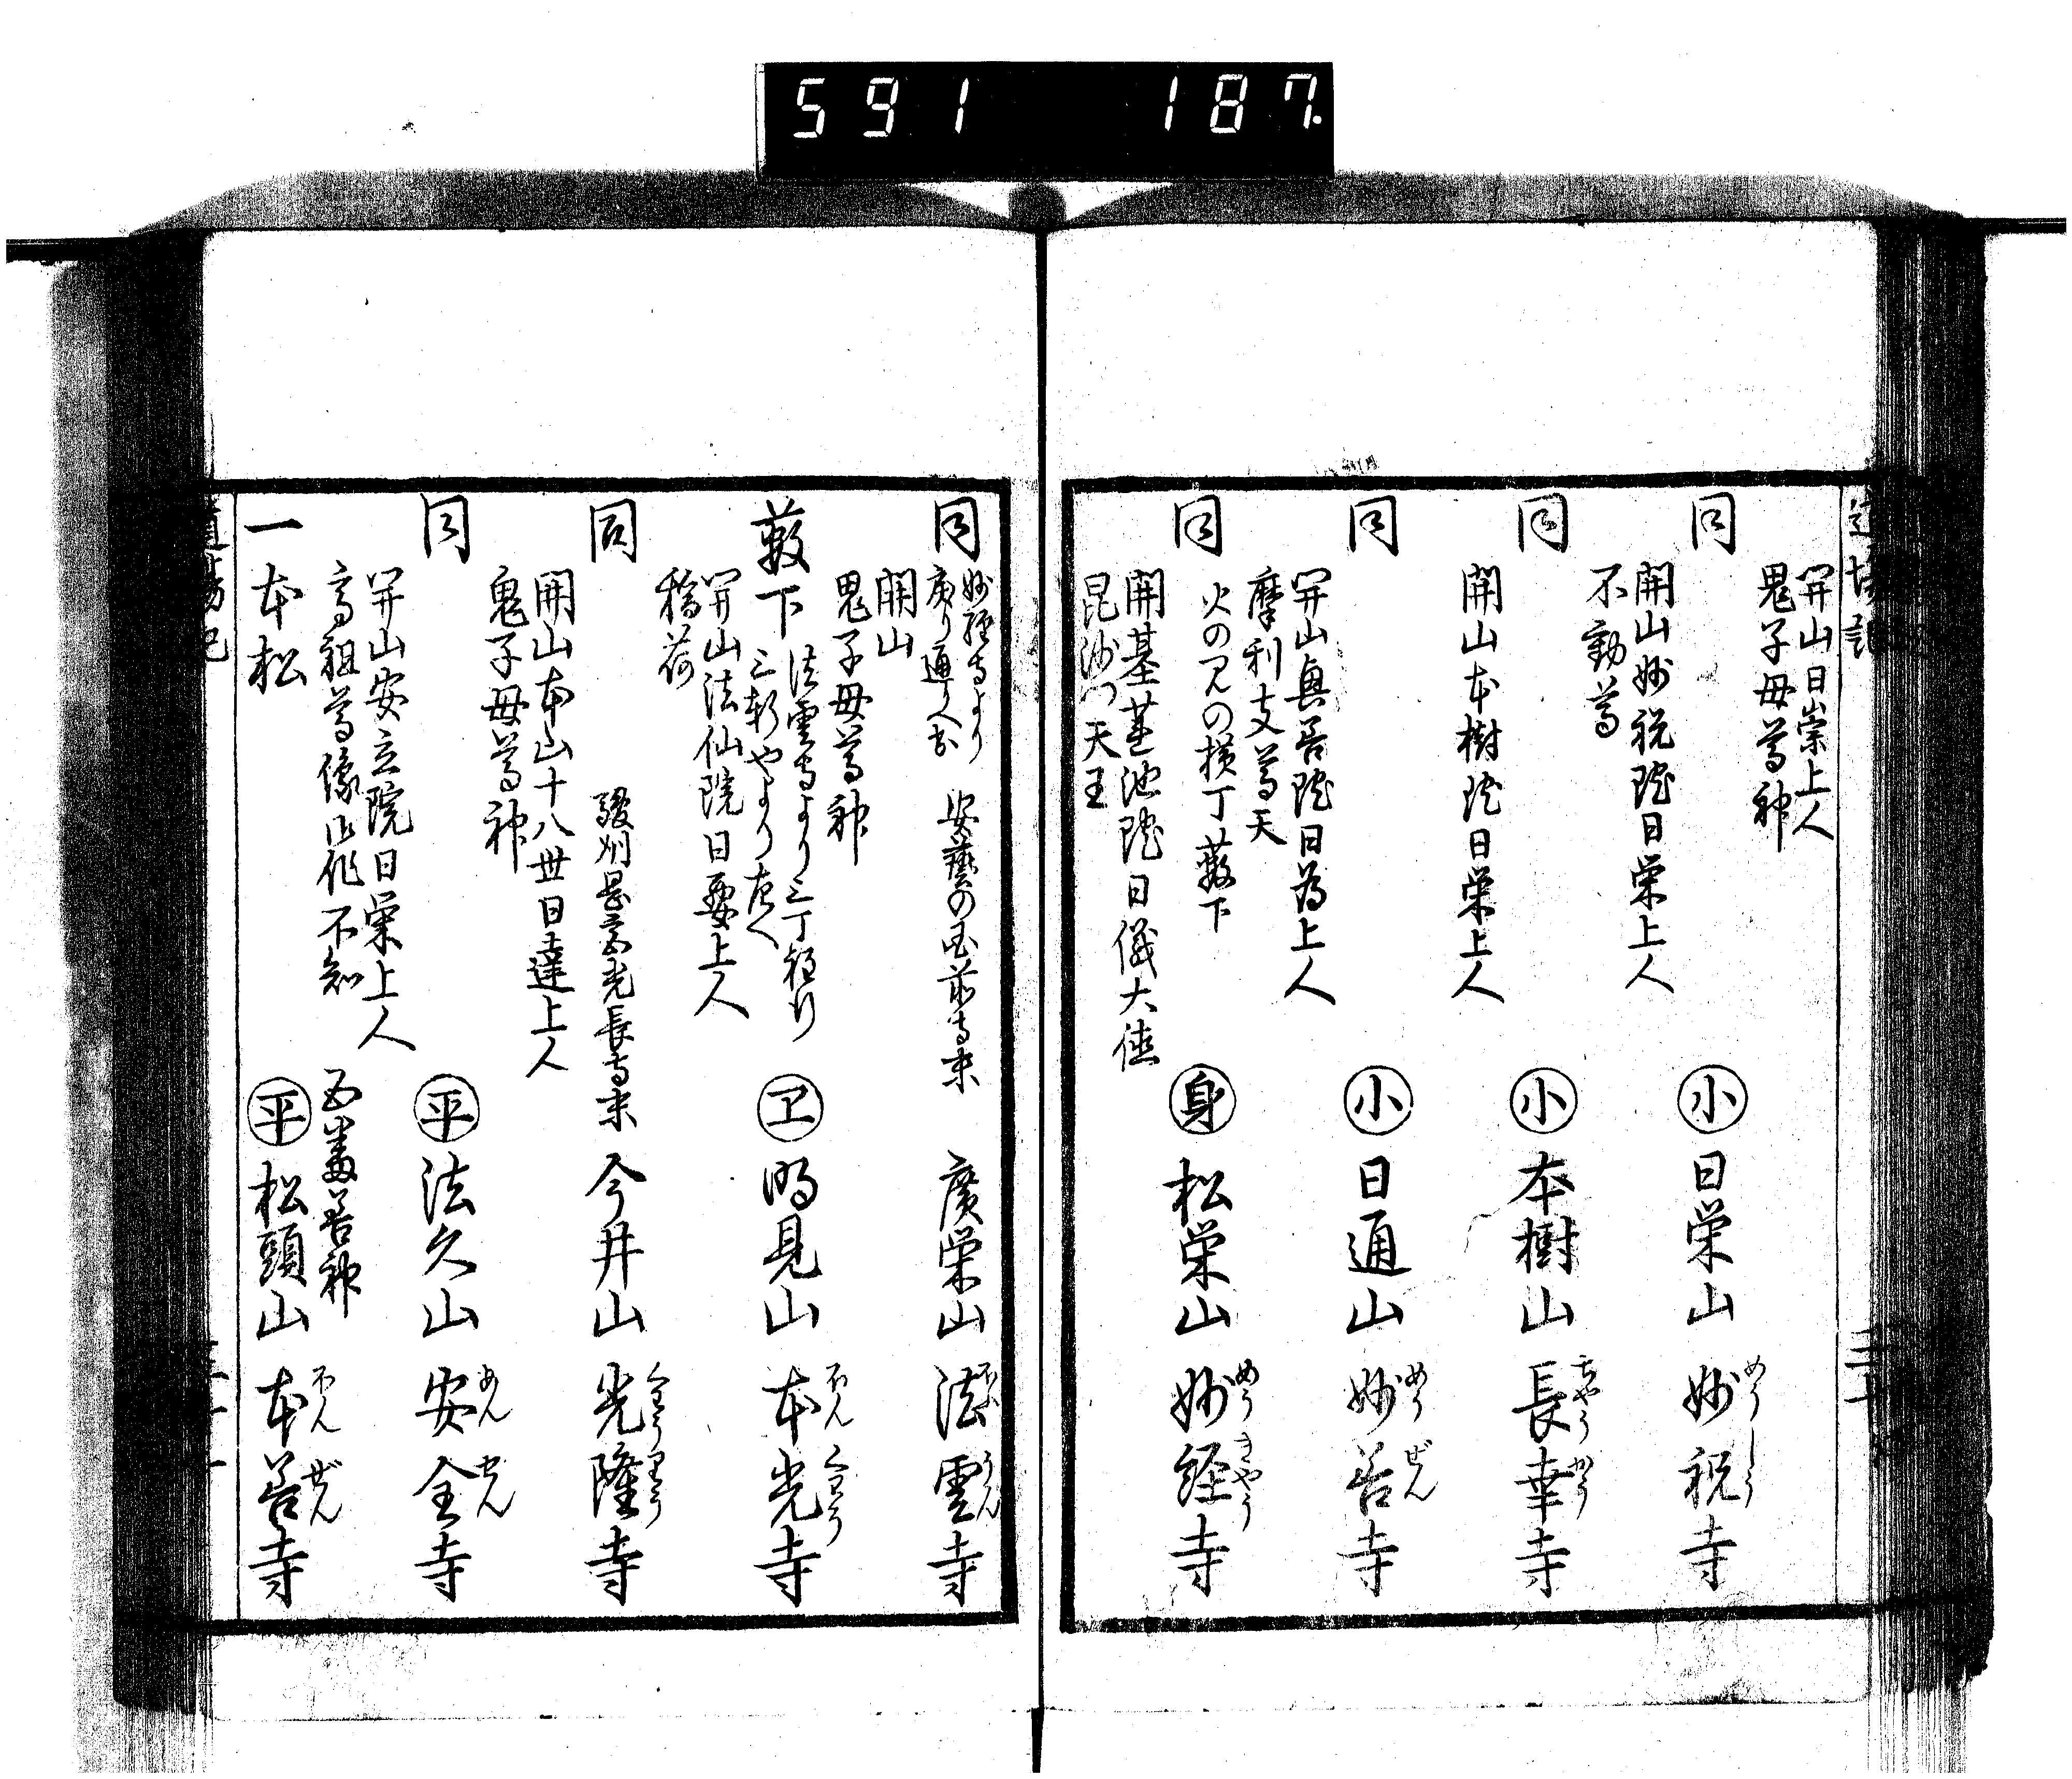 591 187.
開山日崇上人
鬼子母尊神
同 ㋛小 日栄山 妙祝寺
めうしう
開山妙祝院日栄上人
不動尊
同 小 本樹山 長幸寺
ちやうかう
開山本樹院日栄上人
同 小 日通山 妙善寺
めうぜん
開山真善院日為上人
摩利支尊天
火のみの横丁藪下
同 身 松栄山 妙経寺
めうきやう
開基蓮池院日儀大徳
毘沙門天王
妙経寺より
同 安藝の国前寺末 廣栄山 法雲寺
開山
鬼子母尊神
法雲寺より三丁程行
藪下 ヱ 明見山 本光寺
ほんくわう
三軒やより左へ
開山法仙院日要上人
稲荷
同 駿州 光長寺末 今井山 光隆寺
くわうりう
開山本山十八世日達上人
鬼子母尊神
同 平 法久山 安全寺
あんせん
開山安立院日栄上人
高祖尊像御作不知
番善神
一本松 平 松頭山 本善寺
ほんぜん